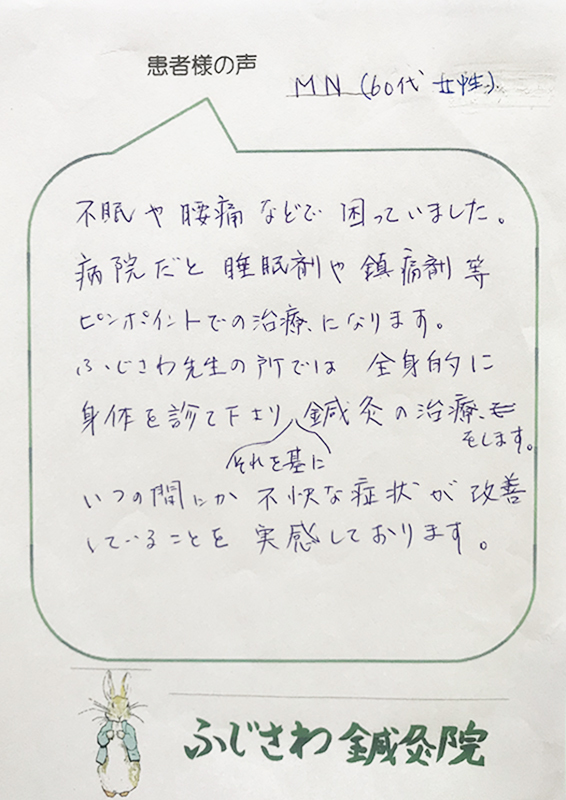 患者様の声
MN (60代 女性).
不眠や腰痛などで困っていました。
病院だと睡眠剤や鎮痛剤等
ピンポイントでの治療になります。
ふじさわ先生の所では 全身的に
身体を診て下さり、鍼灸の治療、
をします。
それを基に
いつの間にか 不快な症状が改善
していることを実感しております。
ふじさわ鍼灸院